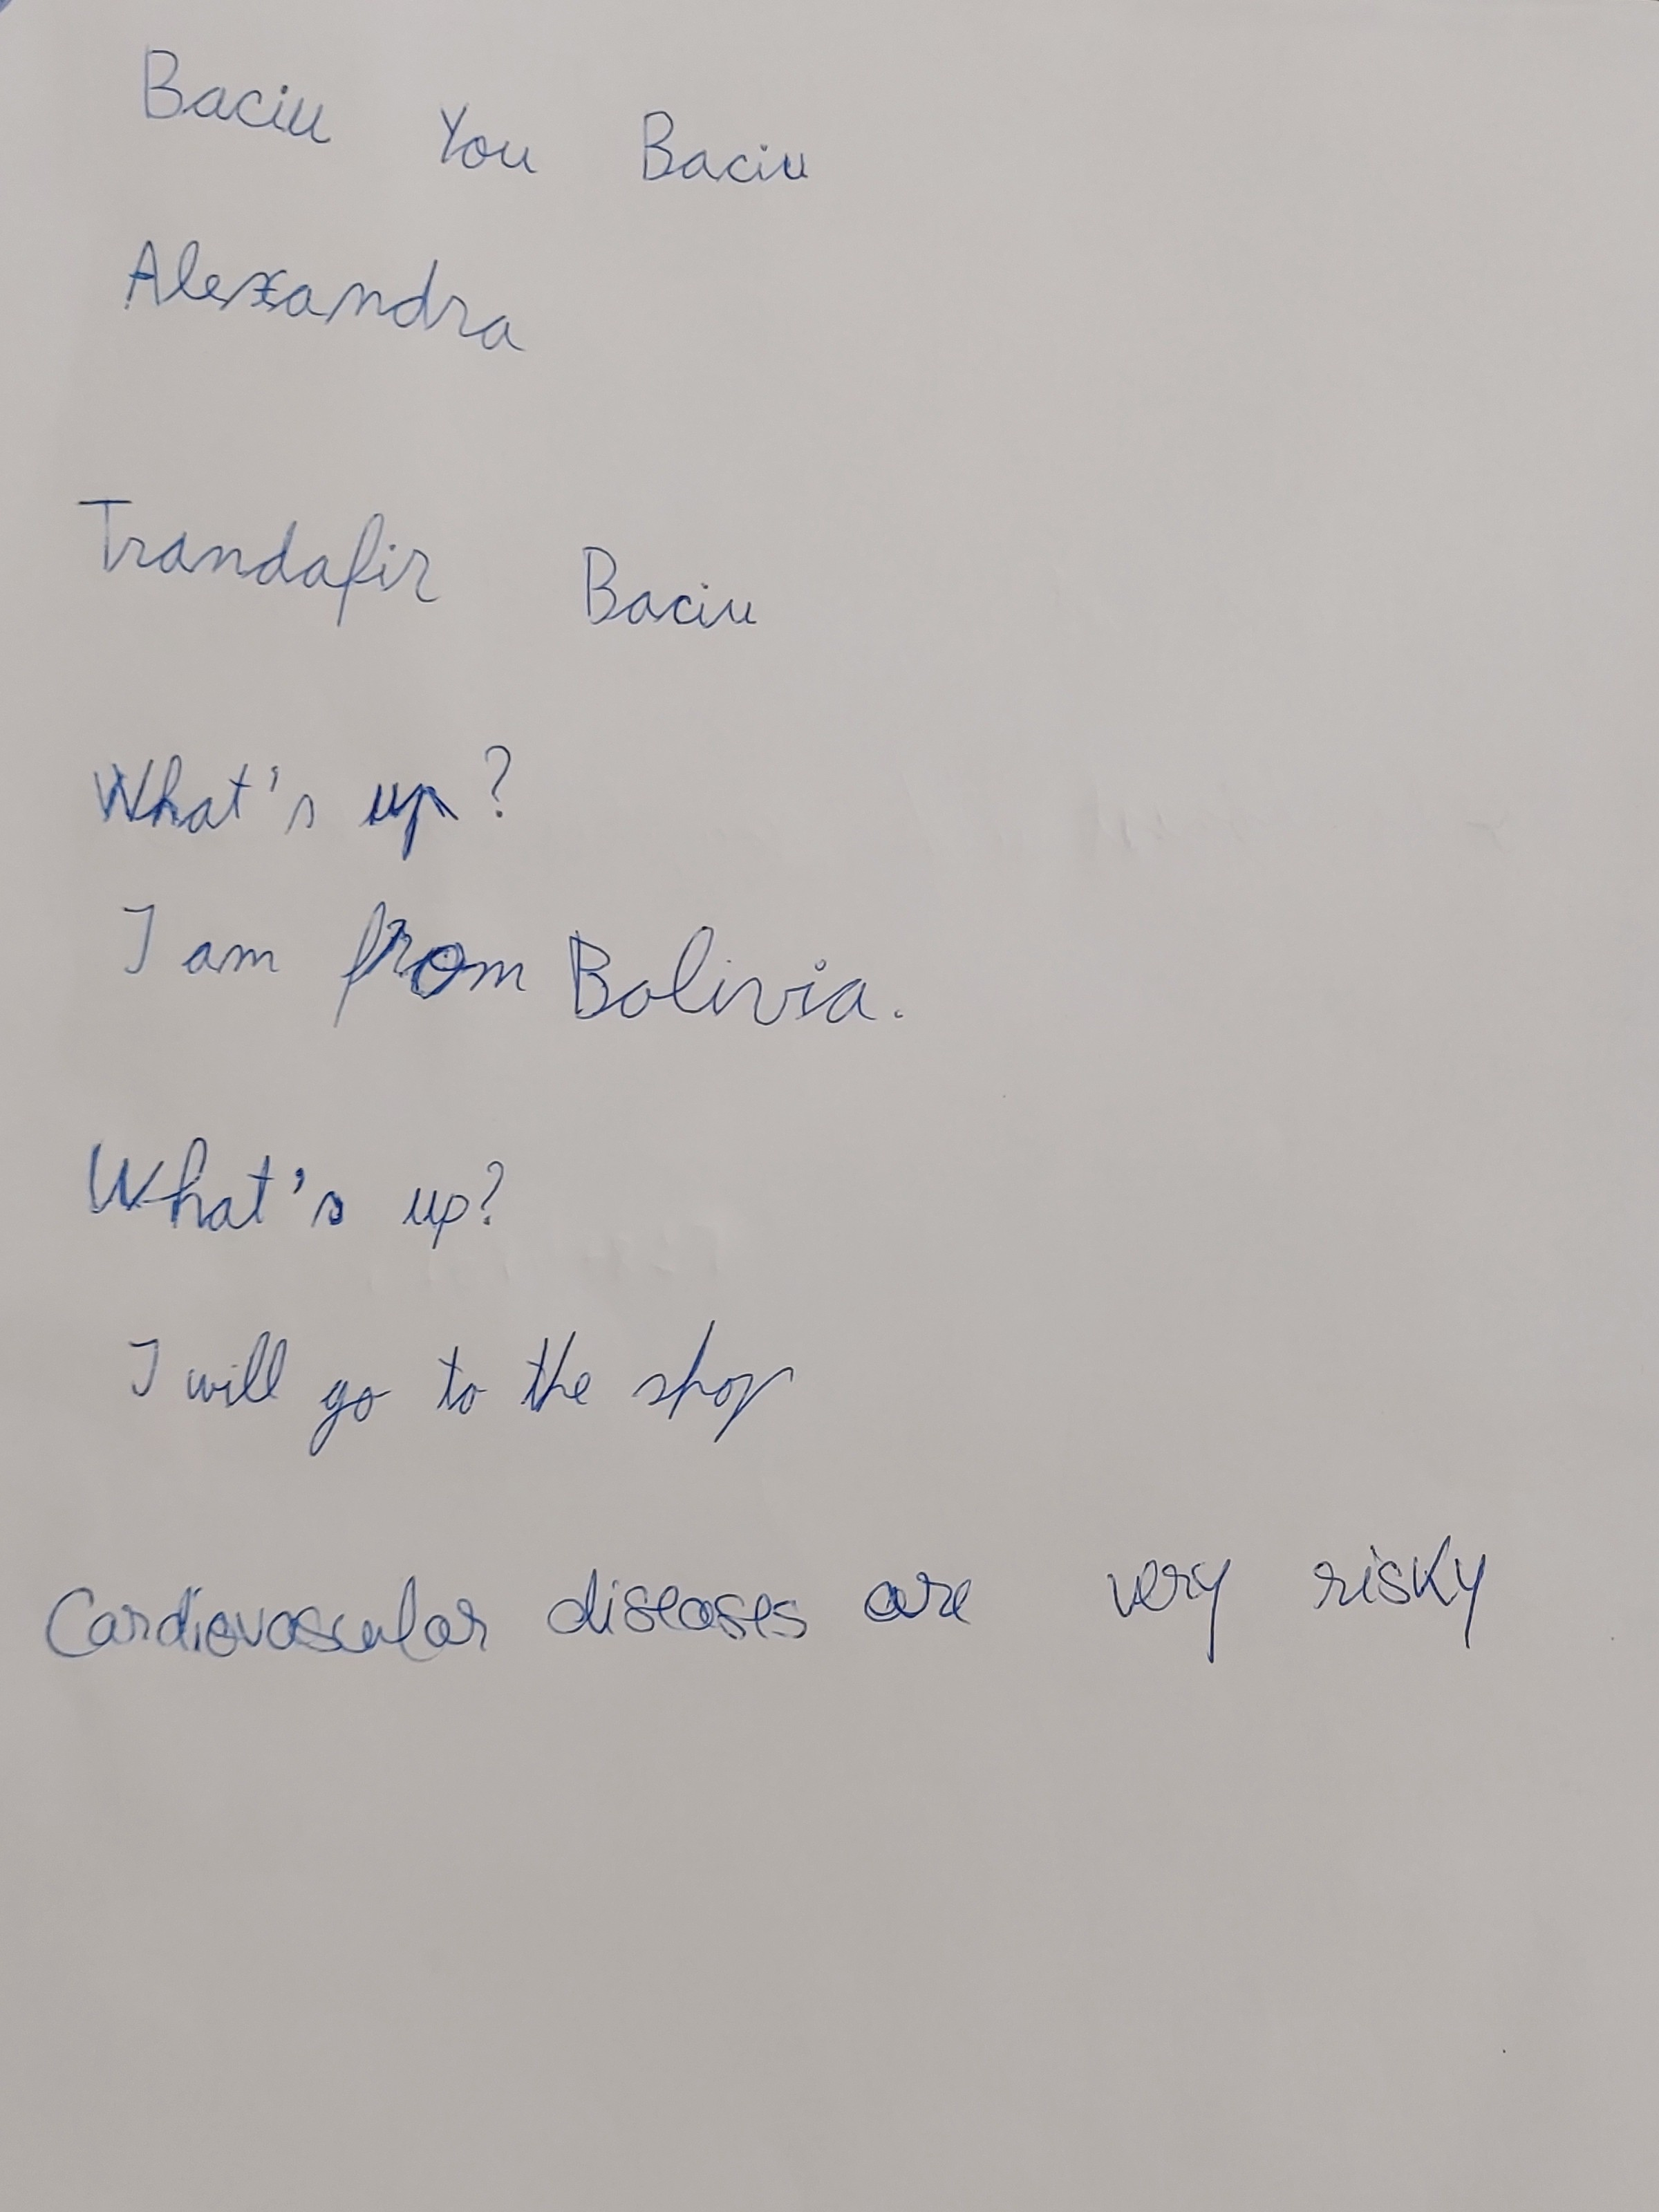 Baciu You Baciu
Alexandra
Trandafir Baciu
What's up?
I am from Bolivia.
What's up?
I will go to the shop
Cardiovascular diseases are very risky